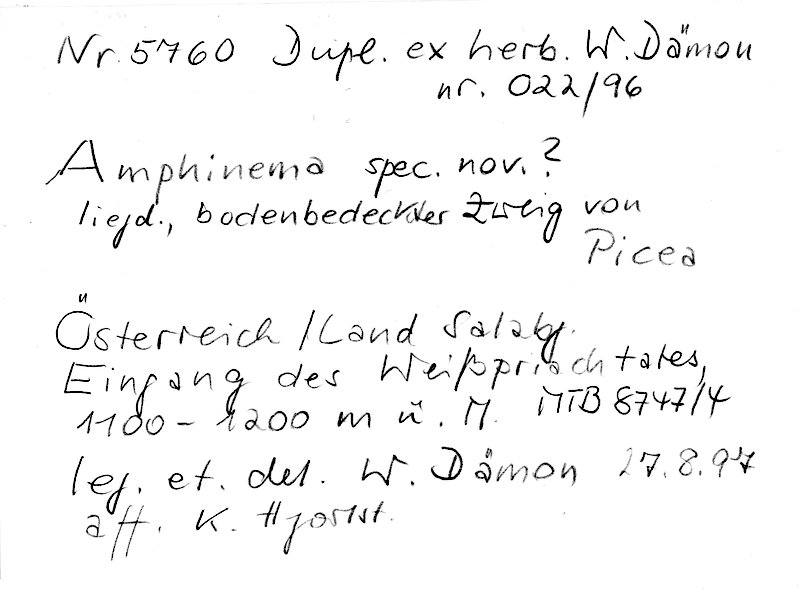 Nr. 5760 Dupl. ex herb. W. Dämon
nr. 022/96
Amphinema spec. nov.?
liegd., bodenbedeckter Zweig von
Picea
Österreich / Land Salzbg.
Eingang des Weißpriachtales,
1100 - 1200 m ü. M. MTB 8747/4
leg. et. det. W. Dämon 27.8.97
aff. K. Hjortst.